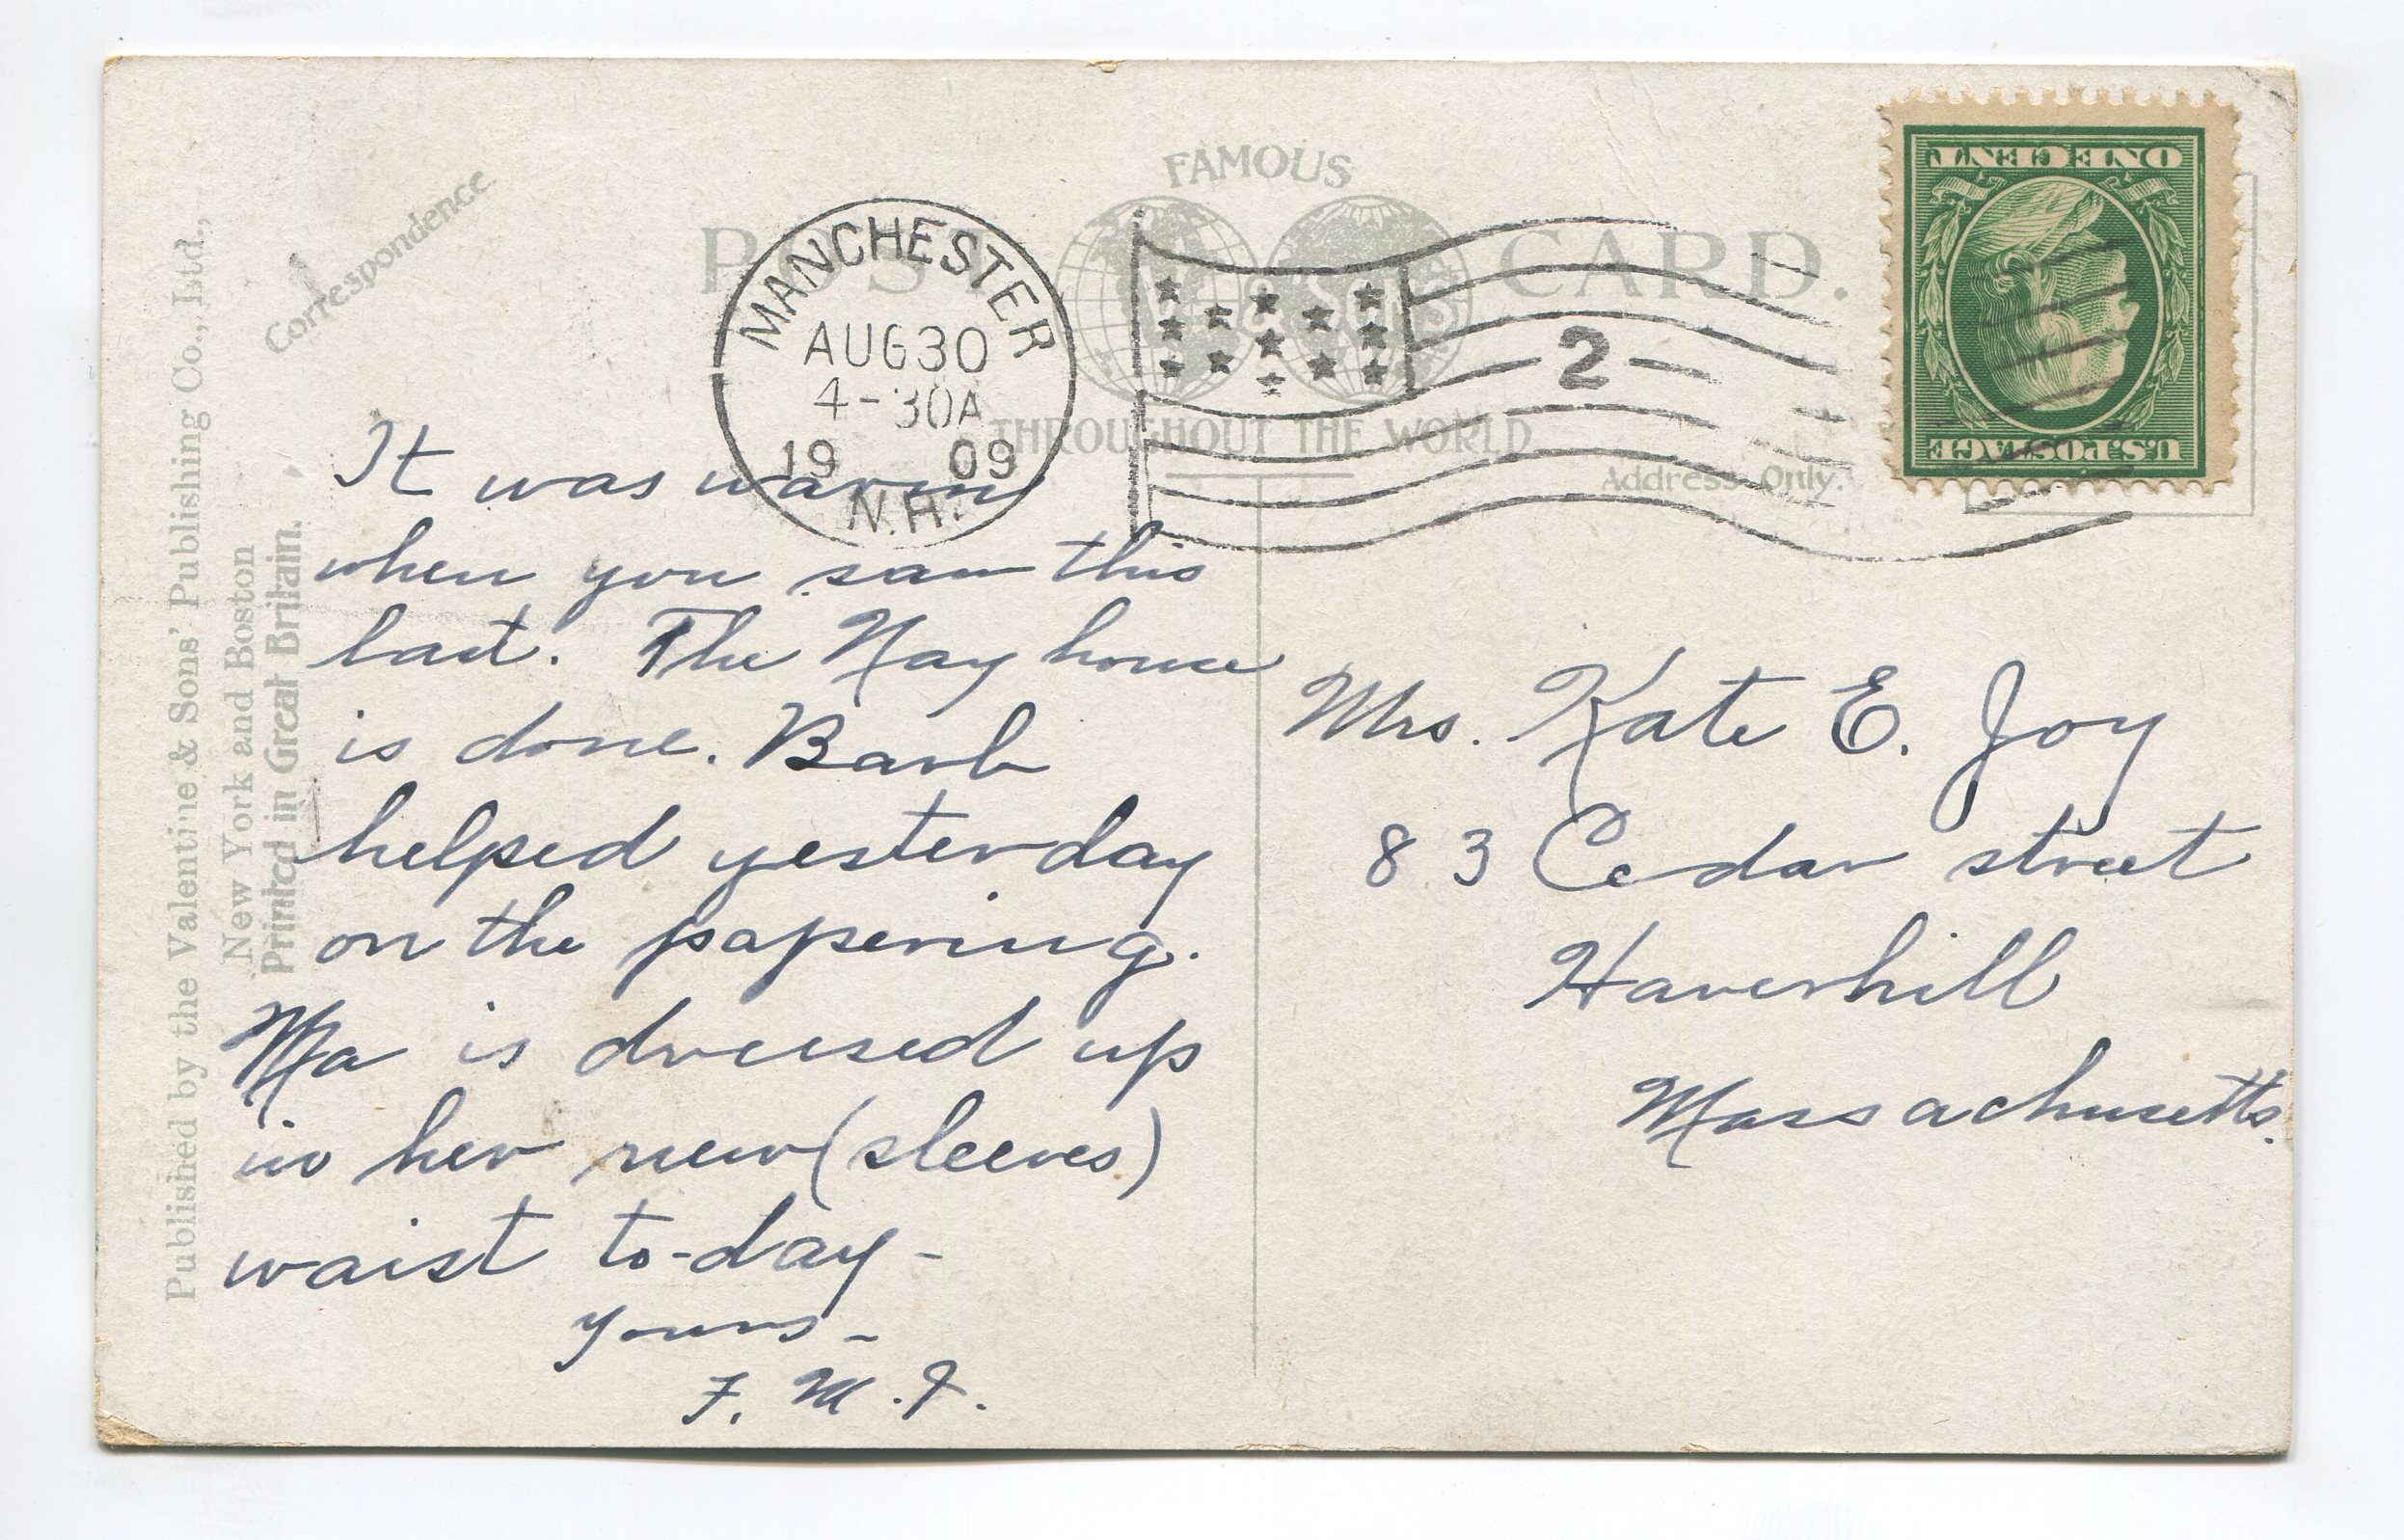 Published by the Valentine & Sons' Publishing Co., Ltd.,
New York and Boston
Printed in Great Britain.
Correspondence.
FAMOUS
POST CARD.
THROUGHOUT THE WORLD
Address Only.
MANCHESTER
AUG 30
4-30A
19 09
N.H.
2
U.S. POSTAGE
ONE CENT
It was warm
when you saw this
last. The Nay house
is done. Barb
helped yesterday
on the papering.
Ma is dressed up
in her new (sleeves)
waist to-day -
Yours -
F. M. J.
Mrs. Kate E. Joy
83 Cedar street
Haverhill
Massachusetts.